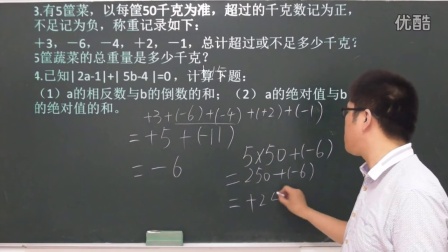 优酷
3.有5筐菜，以每筐50千克为准，超过的千克数记为正，
不足记为负，称重记录如下：
+3，-6，-4，+2，-1，总计超过或不足多少千克？
5筐蔬菜的总重量是多少千克？
4.已知|2a-1|+|5b-4|=0，计算下题：
（1）a的相反数与b的倒数的和；（2）a的绝对值与b
的绝对值的和。
+3+(-6)+(-4)+(+2)+(-1)
=+5+(-11)
=-6
5×50+(-6)
=250+(-6)
=+24